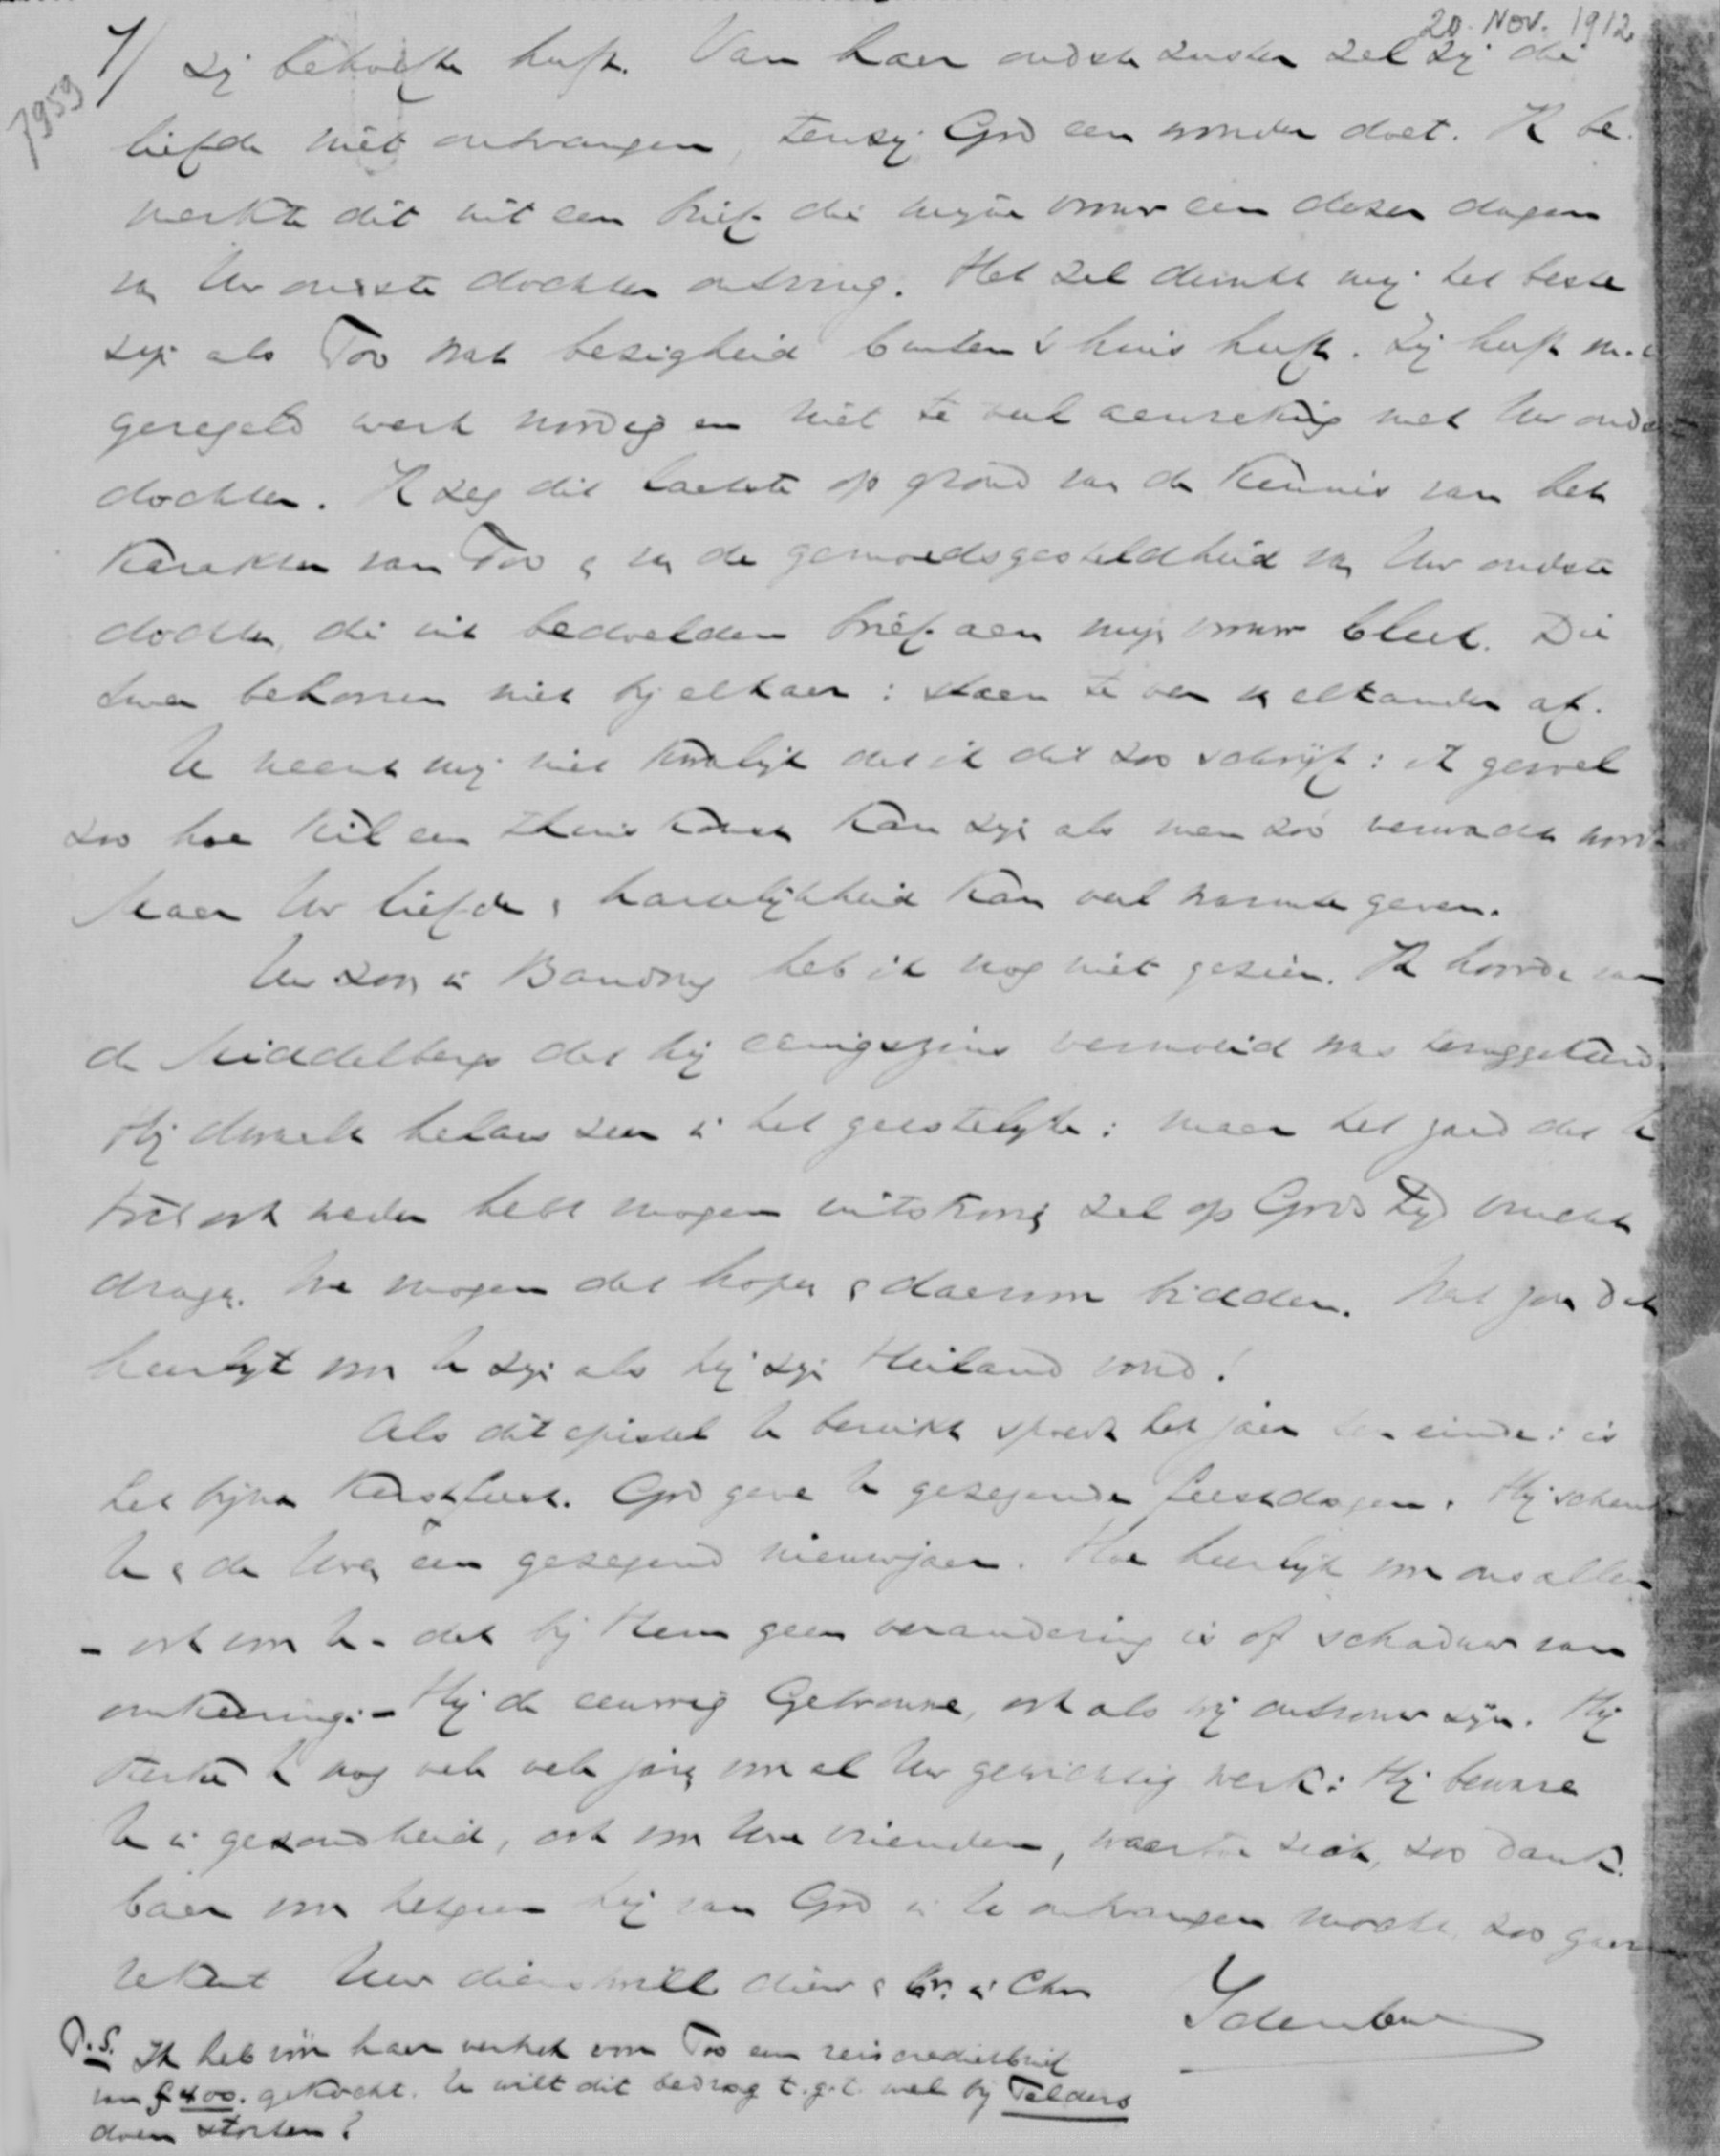 20 Nov. 1912
7959
7/ zij behoefte heeft. Van haar oudste zuster zal zij die
liefde niet ontvangen, tenzij God een wonder doet. Ik be-
merkte dit uit een brief die mijne vrouw een dezer dagen
van Uw oudste dochter ontving. Het zal dunkt mij het beste
zijn als Too wat bezigheid buiten 's huis heeft. Zij heeft m.i.
geregeld werk noodig en niet te veel aanraking met Uw oudste
dochter. Ik zeg dit laatste op grond van de kennis van het
karakter van Too & van de gemoedsgesteldheid van Uw oudste
dochter, die uit bedoelden brief aan mijn vrouw bleek. Die
twee behooren niet bij elkaar: staan te ver van elkander af.
U neemt mij niet kwalijk dat ik dit zoo schrijf: ik gevoel
zoo hoe kil een thuiskomst kan zijn als men zóó verwacht wordt
Maar Uw liefde & hartelijkheid kan veel warmte geven.
Uw zoon in Bandoeng heb ik nog niet gezien. Ik hoorde van
de Middelbergs dat hij eenigszins vermoeid was teruggekeerd.
Hij dwaalt helaas zeer in het geestelijke: maar het zaad dat U
ook weder hebt mogen uitstrooien zal op Gods tijd vrucht
dragen. We mogen dat hopen & daarom bidden. Wat zou dat
heerlijk voor U zijn als hij zijn Heiland vond!
Als dit epistel U bereikt spoedt het jaar ten einde: is
het bijna Kerstfeest. God geve U gezegende feestdagen. Hij schenke
U & de Uwen een gezegend nieuwjaar. Hoe heerlijk voor ons allen
- ook voor U - dat bij Hem geen verandering is of schaduw van
omkeering: - Hij de eeuwig Getrouwe, ook als wij ontrouw zijn. Hij
sterke U nog vele vele jaren voor al Uw gewichtig werk: Hij beware
U in gezondheid, ook voor Uwe vrienden, waartoe zich, zoo dank-
baar voor hetgeen hij van God in U ontvangen mocht, zoo gaarne
rekent Uw dienstwill. dienr & br. in Chr.
Idenburg
P.S. Ik heb vóór haar vertrek voor Too een reiscredietbrief
van f 400. gekocht. U wilt dit bedrag t.g.t. wel bij Telders
doen storten?